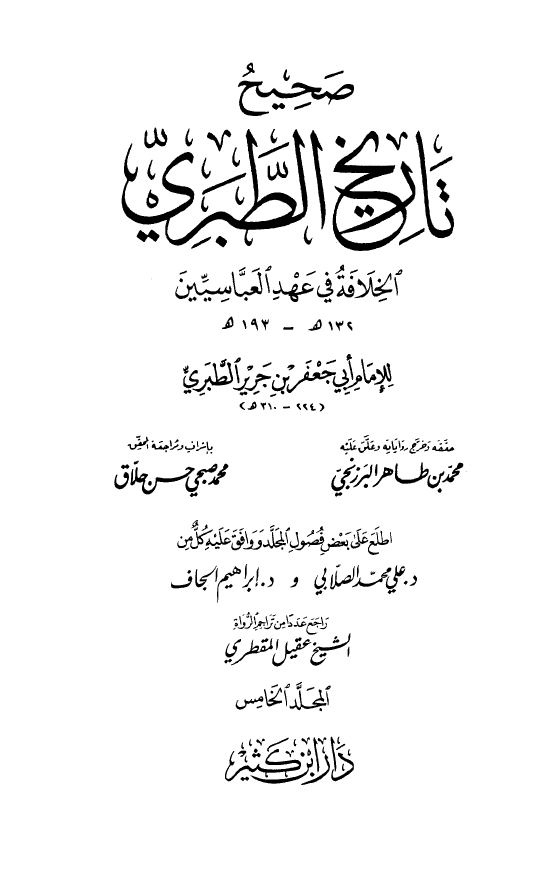 صَحِيحُ
تَارِيخِ الطَّبَرِيِّ
الخِلَافَةُ فِي عَهْدِ العَبَّاسِيِّينَ
١٣٢ هـ - ١٩٣ هـ
لِلإِمَامِ أَبِي جَعْفَر بْنِ جَرِيرِ الطَّبَرِيِّ
(٢٢٤ - ٣١٠ هـ)
حققه وخرج رواياته وعلّق عليه
محمد بن طاهر البرزنجي
بإشراف ومراجعة المحقق
محمد صبحي حسن حلاق
اطلع على بعض فصول المجلد ووافق عليه كلٌّ من
د. علي محمد الصلابي و د. إبراهيم الجاف
راجع عددًا من تراجم الرواة
الشيخ عقيل المقطري
المجلَّد الخامس
دار ابن كثير